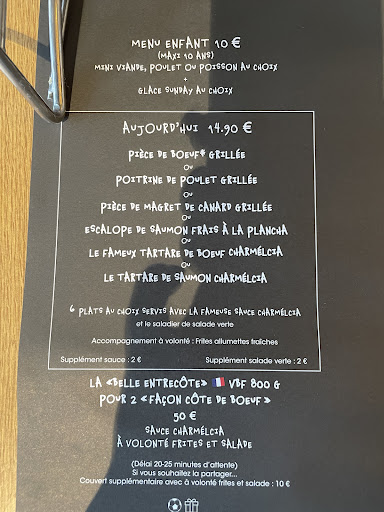 MENU ENFANT 10 €
(MAXI 10 ANS)
MINI VIANDE, POULET OU POISSON AU CHOIX
+
GLACE SUNDAY AU CHOIX
AUJOURD'HUI 14.90 €
PIÈCE DE BOEUF* GRILLÉE
OU
POITRINE DE POULET GRILLÉE
OU
PIÈCE DE MAGRET DE CANARD GRILLÉE
OU
ESCALOPE DE SAUMON FRAIS À LA PLANCHA
OU
LE FAMEUX TARTARE DE BOEUF CHARMÉLCIA
OU
LE TARTARE DE SAUMON CHARMÉLCIA
6 PLATS AU CHOIX SERVIS AVEC LA FAMEUSE SAUCE CHARMÉLCIA
et le saladier de salade verte
Accompagnement à volonté : Frites allumettes fraîches
Supplément sauce : 2 € Supplément salade verte : 2 €
LA «BELLE ENTRECÔTE» 🇫🇷 VBF 800 G
POUR 2 «FAÇON CÔTE DE BOEUF»
50 €
SAUCE CHARMÉLCIA
À VOLONTÉ FRITES ET SALADE
(Délai 20-25 minutes d'attente)
Si vous souhaitez la partager...
Couvert supplémentaire avec à volonté frites et salade : 10 €